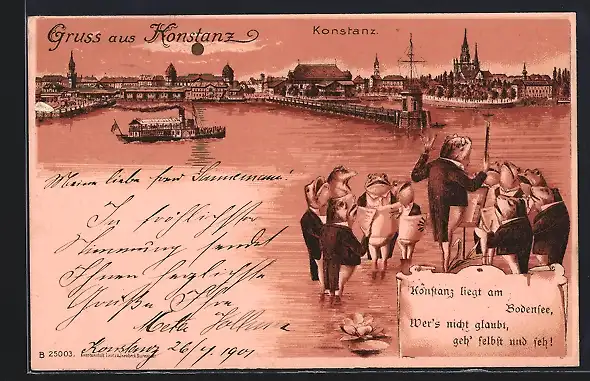 Gruss aus Konstanz
Konstanz.
Meine liebe
In fröhlichster
Stimmung sendet
Ihnen herzlichste
Grüße Ihre
Meta
Konstanz 26/ 1901
Konstanz liegt am
Bodensee,
Wer's nicht glaubt,
geh' selbst und seh!
B 25003.